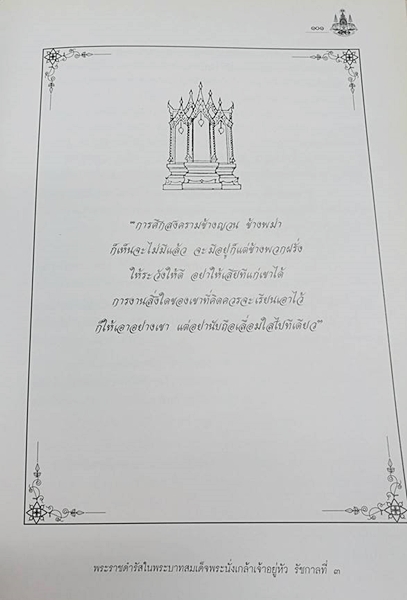 ๑๐๑
"การศึกสงครามข้างญวน ข้างพม่า
ก็เห็นจะไม่มีแล้ว จะมีอยู่ก็แต่ข้างพวกฝรั่ง
ให้ระวังให้ดี อย่าให้เสียทีแก่เขาได้
การงานสิ่งใดของเขาที่คิดควรจะเรียนเอาไว้
ก็ให้เอาอย่างเขา แต่อย่านับถือเลื่อมใสไปทีเดียว"
พระราชดำรัสในพระบาทสมเด็จพระนั่งเกล้าเจ้าอยู่หัว รัชกาลที่ ๓